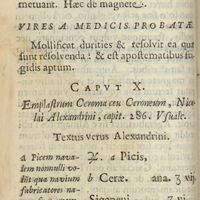 metuant. Hæc de magnete.
VIRES A MEDICIS PROBATÆ
Mollificat durities & resolvit ea quæ
sunt resolvenda: & est apostematibus
gidis aptum.
CAPUT X.
Emplastrum Ceroma ceu Ceroneum, Nico
lai Alexandrini, capit. 286. Usuale.
Textus verus Alexandrini.
a Picem nava-
lem nonnulli vo-
lũt quà navium
fabricatores na-
a Picis,
b Ceræ. ana. ʒ vij.
Sigapeni ʒ vi.